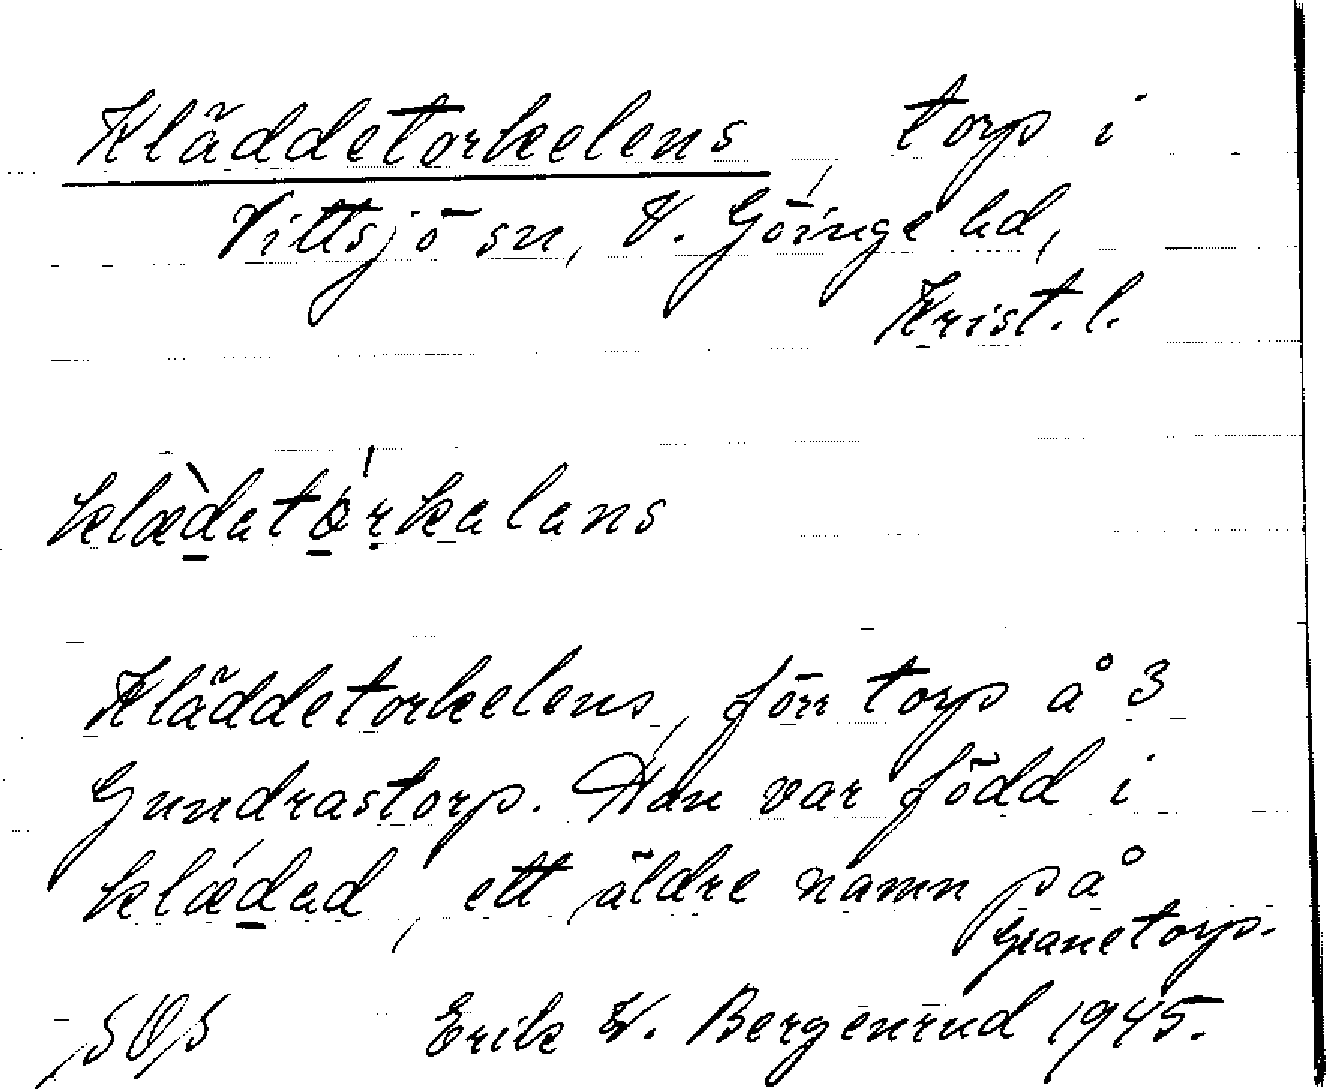 Kläddetorkelens, torp i
Vittsjö sn, V. Göinge hd,
Krist. l.
klæ̀datórkalans
Kläddetorkelens, förr torp å 3
Gundrastorp. Han var född i
klǽdad, ett äldre namn på
Granetorp.
Erik W. Bergenrud 1945.